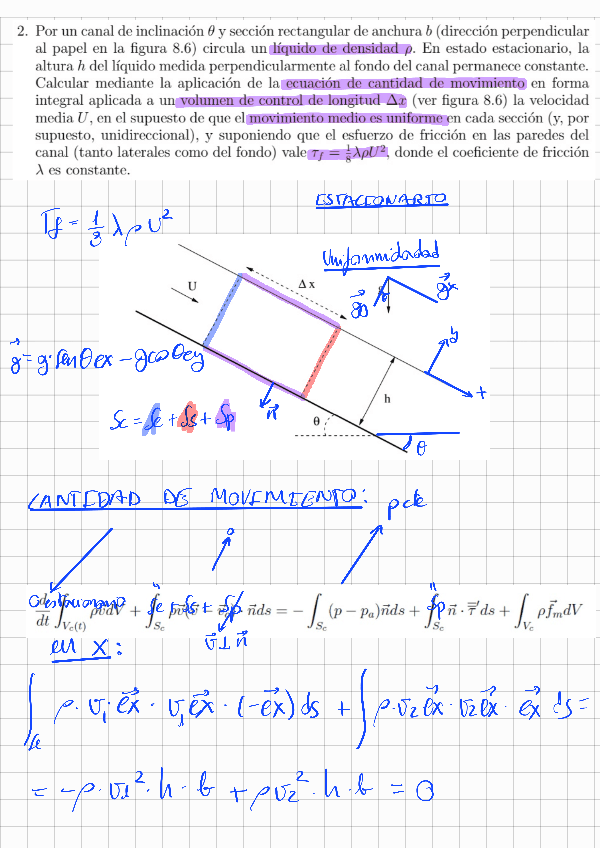 2. Por un canal de inclinación θ y sección rectangular de anchura b (dirección perpendicular
al papel en la figura 8.6) circula un líquido de densidad ρ. En estado estacionario, la
altura h del líquido medida perpendicularmente al fondo del canal permanece constante.
Calcular mediante la aplicación de la ecuación de cantidad de movimiento en forma
integral aplicada a un volumen de control de longitud Δx (ver figura 8.6) la velocidad
media U, en el supuesto de que el movimiento medio es uniforme en cada sección (y, por
supuesto, unidireccional), y suponiendo que el esfuerzo de fricción en las paredes del
canal (tanto laterales como del fondo) vale τ_f = 1/8 λρU², donde el coeficiente de fricción
λ es constante.
ESTACIONARIO
τf = 1/8 λρU²
Uniformidadad
U
Δx
g⃗x
y
g⃗ = g·senθ ex − g cosθ ey
h
x
n⃗
Sc = Se + Ss + Sp
θ
θ
CANTIDAD DE MOVIMIENTO: p cte
d/dt ∫_{Vc(t)} ρv⃗dV + ∫_{Sc} n⃗ds = − ∫_{Sc} (p − p_a)n⃗ds + ∫ n⃗ · τ̿′ds + ∫_{Vc} ρf⃗_m dV
Se + Ss + Sp
Sp
v⃗ ⊥ n⃗
en x:
∫ ρ · v₁ e⃗x · v₁ e⃗x · (−e⃗x) ds + ∫ ρ · v₂ e⃗x · v₂ e⃗x · e⃗x ds =
= −ρ · v₁² · h · b + ρ v₂² · h · b = 0